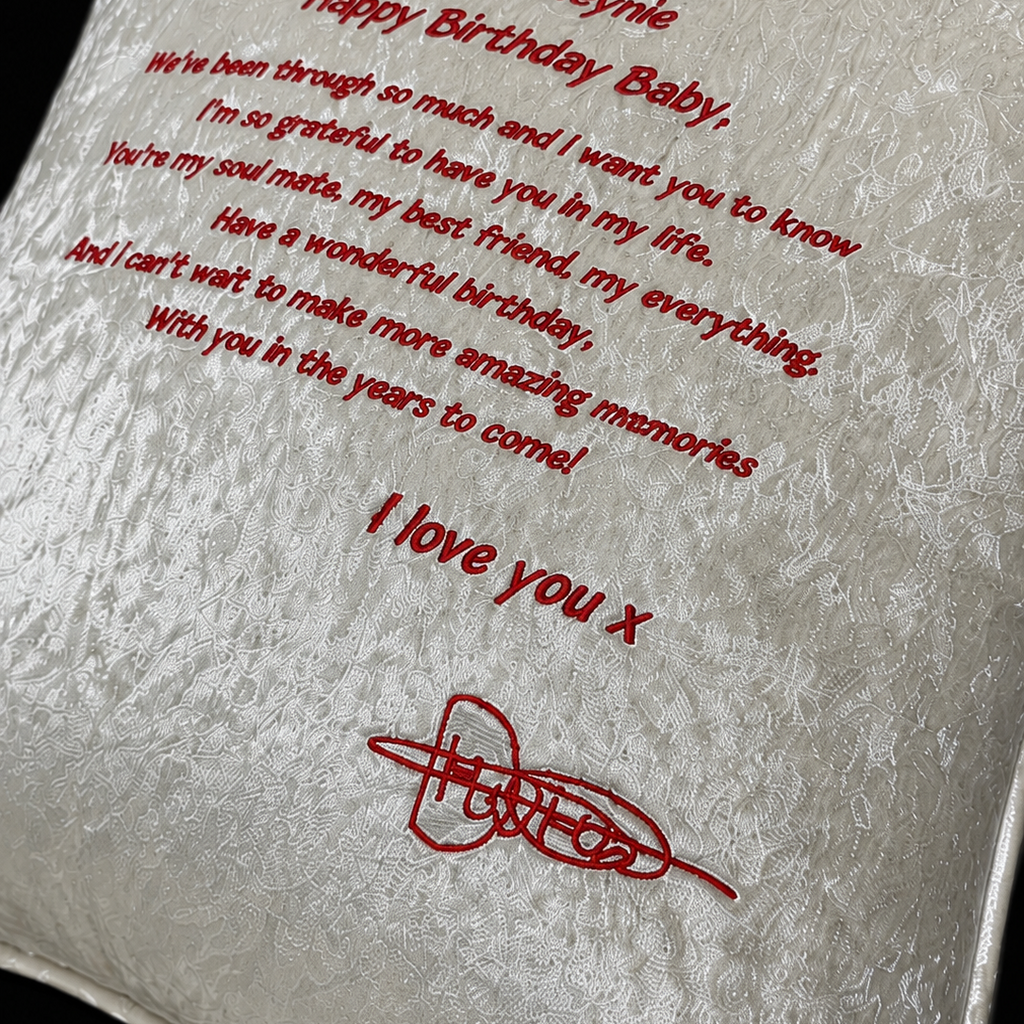 Happy Birthday Baby,
We've been through so much and I want you to know
I'm so grateful to have you in my life.
You're my soul mate, my best friend, my everything.
Have a wonderful birthday,
And I can't wait to make more amazing
With you in the years to come!
I love you x